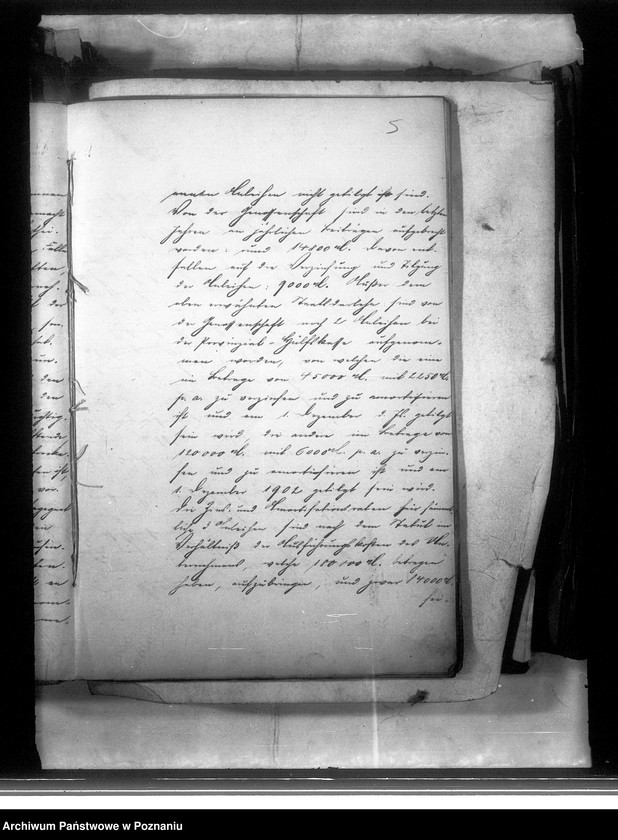 5
ersten Anleihen nicht getilgt ist sind.
Von der Genossenschaft sind in den letzten
Jahren an jährlichen Beiträgen aufgebracht
worden: rund 14800 M. Davon ent-
fallen auf die Verzinsung und Tilgung
der Anleihen: 9000 M. Außer dem
oben erwähnten Staatsdarlehn sind von
der Genossenschaft noch 2 Anleihen bei
der Provinzial-Hülfskasse aufgenom-
men worden, von welchen die eine
im Betrage von 45000 M. mit 2250 M.
p. a. zu verzinsen und zu amortisieren
ist und am 1. Dezember d. Js. getilgt
sein wird, die andere im Betrage von
120000 M. mit 6000 M. p. a. zu verzin-
sen und zu amortisieren ist und am
1. Dezember 1902 getilgt sein wird.
Die Zins- und Amortisationsraten für sämmt-
liche 3 Anleihen sind nach dem Statut im
Verhältniß der Ausführungskosten des Un-
ternehmens, welche 180100 M. betragen
haben, aufzubringen, und zwar 14000 M.
sei-
Archiwum Państwowe w Poznaniu